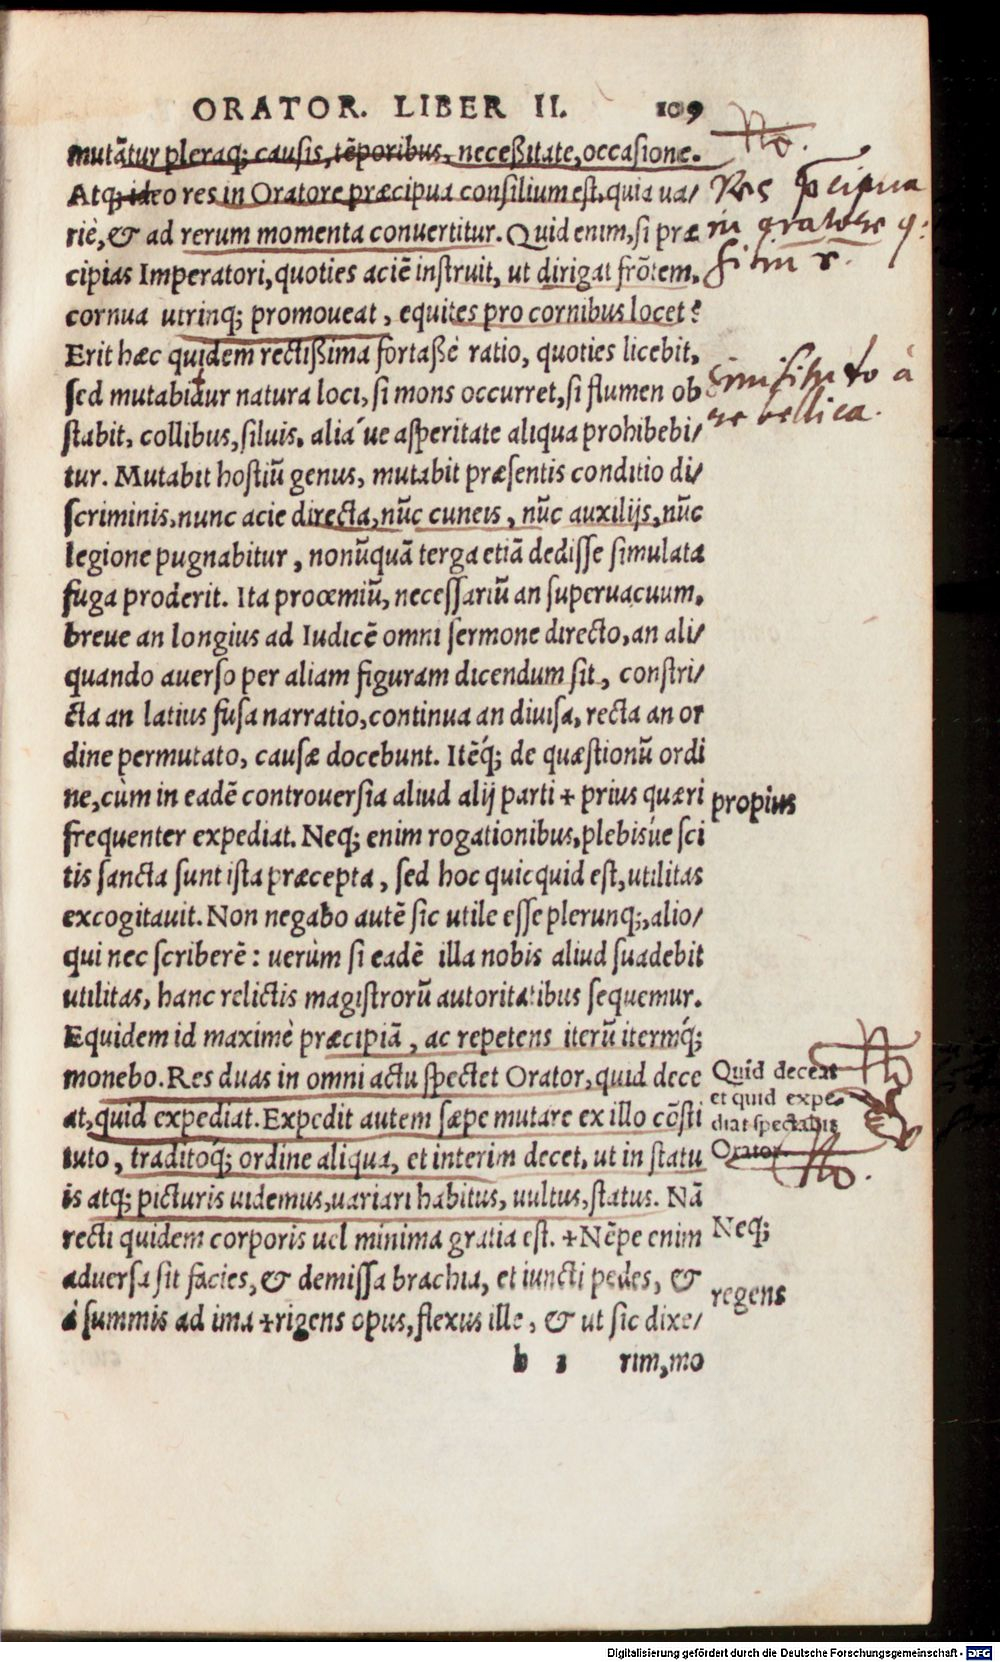 ORATOR. LIBER II. 109
mutãtur pleraq; causis, tẽporibus, neceßitate, occasione.
No.
Atq; ideo res in Oratore præcipua consilium est, quia ua/
Res p̱cipua
riè, & ad rerum momenta conuertitur. Quid enim, si præ
in oratore
cipias Imperatori, quoties aciẽ inſtruit, ut dirigat frõtem,
cornua utrinq; promoueat, equites pro cornibus locet?
Erit hæc quidem rectißima fortaßè ratio, quoties licebit,
similitudo à
sed mutabitur natura loci, ſi mons occurret, ſi flumen ob
re bellica.
ſtabit, collibus, ſiluis, alia´ue aſperitate aliqua prohibebi/
tur. Mutabit hoſtiũ genus, mutabit præſentis conditio di/
ſcriminis, nunc acie directa, nũc cuneis, nũc auxilijs, nũc
legione pugnabitur, nonũquã terga etiã dediſſe ſimulata
fuga proderit. Ita prooemiũ, neceſſariũ an ſuperuacuum,
breue an longius ad Iudicẽ omni ſermone directo, an ali/
quando auerſo per aliam figuram dicendum ſit, conſtri/
cta an latius fuſa narratio, continua an diuiſa, recta an or
dine permutato, cauſæ docebunt. Itẽq́; de quæſtionũ ordi
ne, cùm in eadẽ controuerſia aliud alij parti + prius quæri
propius
frequenter expediat. Neq; enim rogationibus, plebisúe ſci
tis ſancta ſunt iſta præcepta, ſed hoc quicquid eſt, utilitas
excogitauit. Non negabo autẽ ſic utile eſſe plerunq;, alio/
qui nec ſcriberẽ: uerùm ſi eadẽ illa nobis aliud ſuadebit
utilitas, hanc relictis magiſtrorũ autoritatibus ſequemur.
Equidem id maximè præcipiã, ac repetens iterũ itermq́;
monebo. Res duas in omni actu ſpectet Orator, quid dece
Quid deceat
et quid expe-
at, quid expediat. Expedit autem ſæpe mutare ex illo cõſti
diat spectabit
tuto, traditóq; ordine aliqua, et interim decet, ut in ſtatu
Orator.
No.
is atq; picturis uidemus, uariari habitus, uultus, ſtatus. Nã
recti quidem corporis uel minima gratia eſt. + Nẽpe enim
Neq;
aduerſa ſit facies, & demiſſa brachia, et iuncti pedes, &
à ſummis ad ima + rigens opus, flexus ille, & ut ſic dixe/
regens
h 3 rim, mo
Digitalisierung gefördert durch die Deutsche Forschungsgemeinschaft - DFG